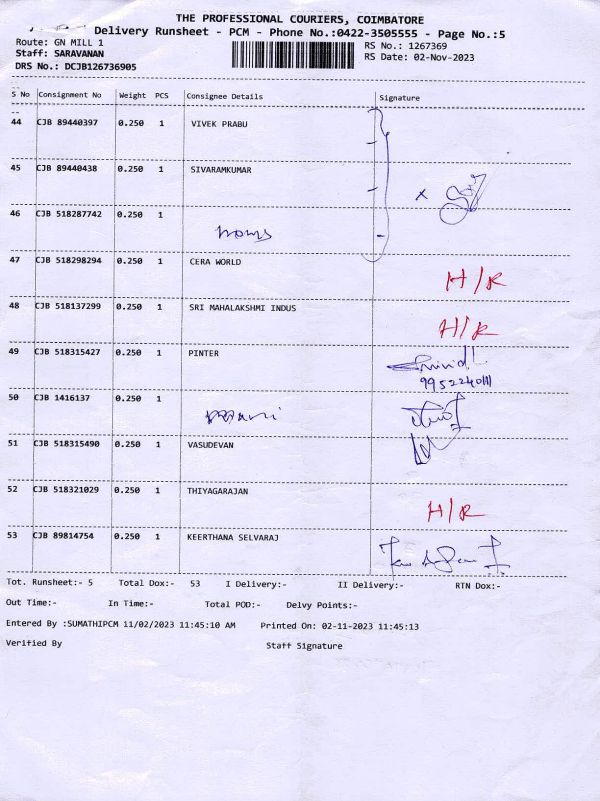 THE PROFESSIONAL COURIERS, COIMBATORE
Delivery Runsheet - PCM - Phone No.:0422-3505555 - Page No.:5
Route: GN MILL 1 RS No.: 1267369
Staff: SARAVANAN RS Date: 02-Nov-2023
DRS No.: DCJB126736905
S No Consignment No Weight PCS Consignee Details Signature
44 CJB 89440397 0.250 1 VIVEK PRABU
45 CJB 89440438 0.250 1 SIVARAMKUMAR
46 CJB 518287742 0.250 1
47 CJB 518298294 0.250 1 CERA WORLD H/R
48 CJB 518137299 0.250 1 SRI MAHALAKSHMI INDUS H/R
49 CJB 518315427 0.250 1 PINTER
50 CJB 1416137 0.250 1
51 CJB 518315490 0.250 1 VASUDEVAN
52 CJB 518321029 0.250 1 THIYAGARAJAN H/R
53 CJB 89814754 0.250 1 KEERTHANA SELVARAJ
Tot. Runsheet:- 5 Total Dox:- 53 I Delivery:- II Delivery:- RTN Dox:-
Out Time:- In Time:- Total POD:- Delvy Points:-
Entered By :SUMATHIPCM 11/02/2023 11:45:10 AM Printed On: 02-11-2023 11:45:13
Verified By Staff Signature